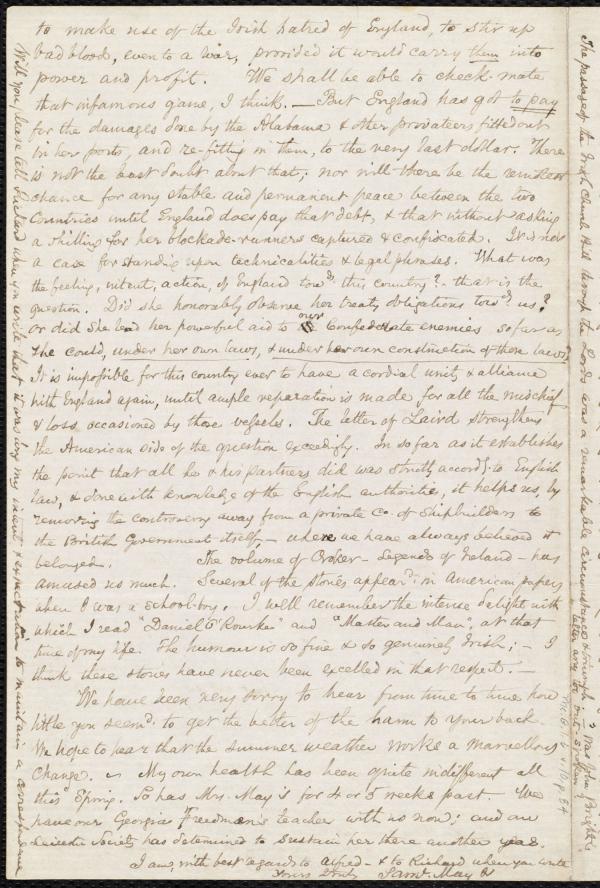 to make use of the Irish hatred of England, to stir up
bad blood, even to a war, provided it would carry them into
power and profit. We shall be able to check-mate
that infamous game, I think. — But England has got to pay
for the damages done by the Alabama & other privateers fitted out
in her ports, and re-fitting in them, to the very last dollar. There
is not the least doubt about that; nor will there be the remotest
chance for any stable and permanent peace between the two
Countries until England does pay that debt, & that without asking
a shilling for her blockade-runners captured & confiscated. It is not
a case for standing upon technicalities & legal phrases. What was
the feeling, intent, action, of England tow.ds this country? - that is the
question. Did she honorably observe her treaty obligations tow.ds us?
or did she lend her powerful aid to our Confederate enemies so far as
she could, under her own laws, & under her own construction of those laws?
It is impossible for this country ever to have a cordial unity & alliance
with England again, until ample reparation is made for all the mischief
& loss occasioned by those vessels. The letter of Laird strengthens
the American side of the question exceedingly. In so far as it establishes
the point that all he & his partners did was strictly accord.g to English
law, & done with knowledge of the English authorities, it helps us, by
removing the controversy away from a private Co. of Shipbuilders to
the British Government itself — where we have always believed it
belonged. The volume of Croker - Legends of Ireland - has
amused us much. Several of the stories appear.d in American papers
when I was a school-boy. I well remember the intense delight with
which I read "Daniel O'Rourke" and "Master and Man", at that
time of my life. The humour is so fine & so genuinely Irish; — I
think these stories have never been excelled in that respect. —
We have been very sorry to hear from time to time how
little you seem.d to get the better of the harm to your back.
We hope to hear that the summer weather works a marvellous
change. My own health has been quite indifferent all
this Spring. So has Mrs. May's for 4 or 5 weeks past. We
have our Georgia Freedmen's teacher with us now; and our
Leicester Society has determined to sustain her there another year.
I am, with best regards to Alfred - & to Richard when you write
Yours truly Saml. May Jr
Will you please tell Richard when you write that it was my intent & expectation to maintain a correspondence
The passage of the Irish Church Bill through the Lords was a remarkable circumstance & triumph. Was John Bright's
letter any too out-spoken?